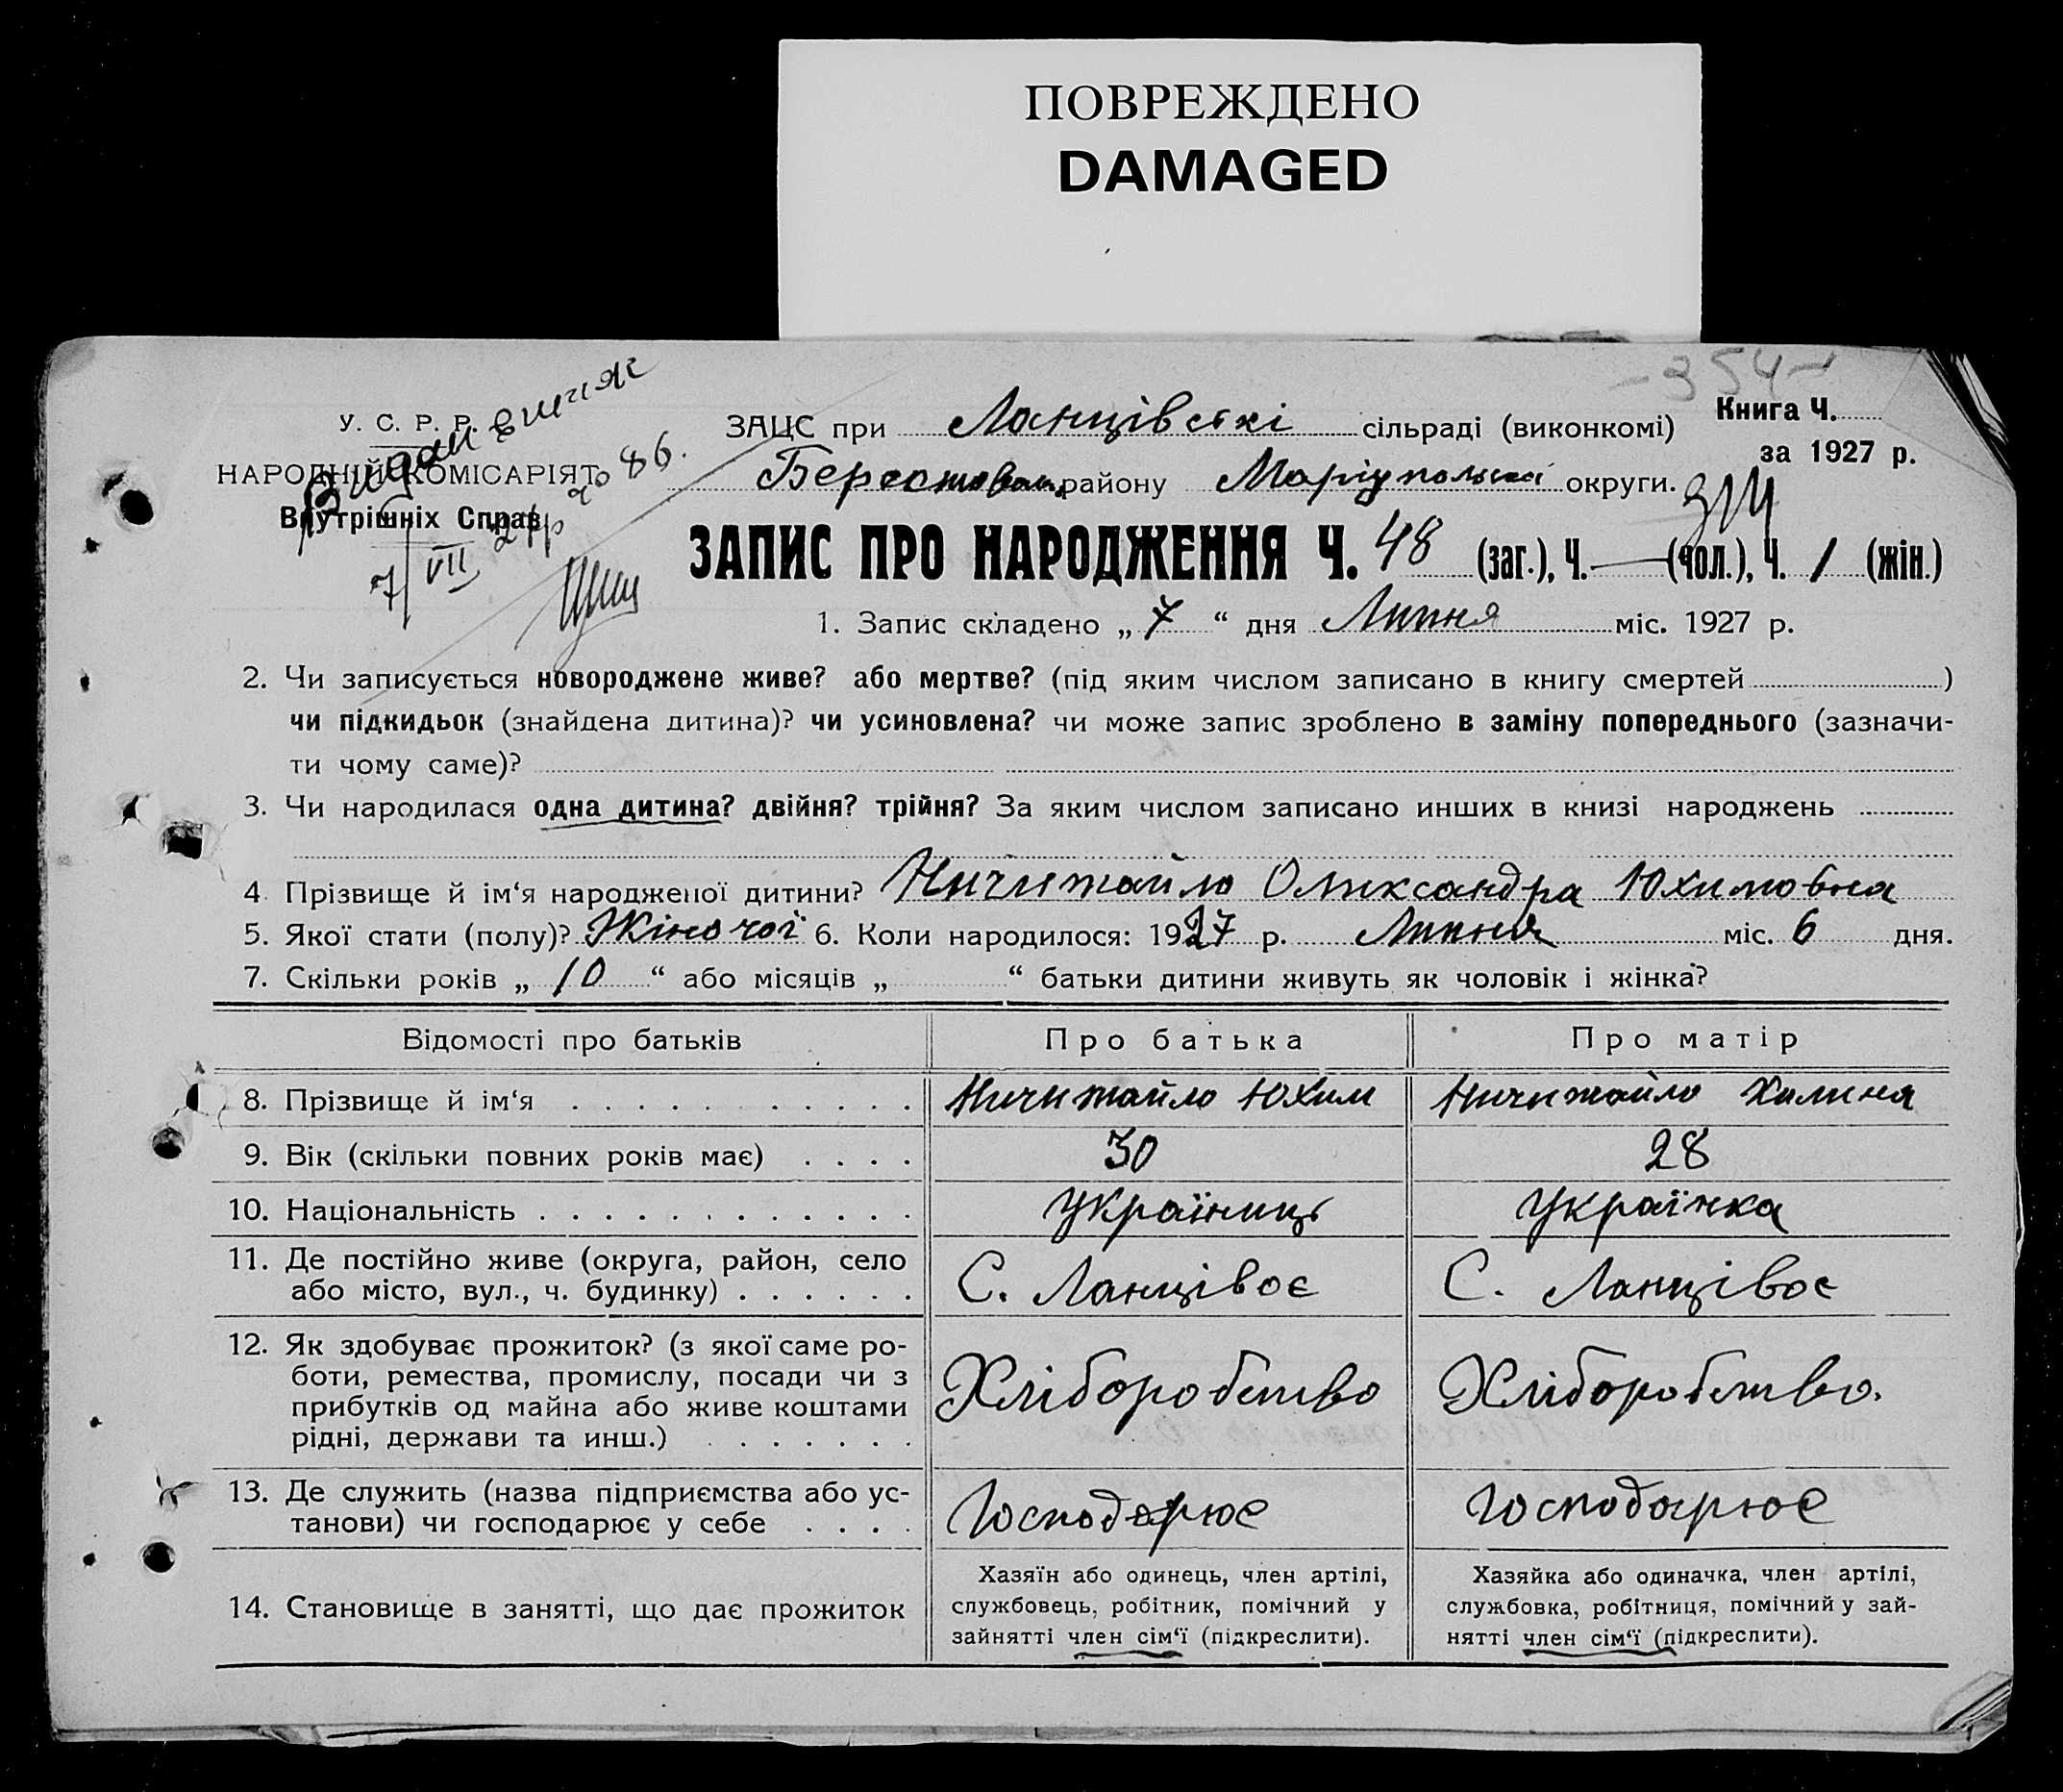 ПОВРЕЖДЕНО
DAMAGED
-354-
У. С. Р. Р.
НАРОДНІЙ КОМІСАРІЯТ
Внутрішніх Справ
Видан витяк
7/VII 27р № 86.
ЗАЦС при Ланцівскі сільраді (виконкомі)
Книга Ч.
за 1927 р.
району Маріупольскі округи.
ЗАПИС ПРО НАРОДЖЕННЯ Ч. 48 (заг.), Ч. — (чол.), Ч. 1 (жін.)
1. Запис складено „ 7 “ дня Липня міс. 1927 р.
2. Чи записується новороджене живе? або мертве? (під яким числом записано в книгу смертей )
чи підкидьок (знайдена дитина)? чи усиновлена? чи може запис зроблено в заміну попереднього (зазначи-
ти чому саме)?
3. Чи народилася одна дитина? двійня? трійня? За яким числом записано инших в книзі народжень
4. Прізвище й ім‘я народженої дитини? Ничитайло Оликсандра Юхимовна
5. Якої стати (полу)? Жіночої 6. Коли народилося: 1927 р. Липня міс. 6 дня.
7. Скільки років „ 10 “ або місяців „ “ батьки дитини живуть як чоловік і жінка?
Відомості про батьків Про батька Про матір
8. Прізвище й ім‘я Ничитайло Юхим Ничитайло Халина
9. Вік (скільки повних років має) 30 28
10. Національність Україниць Українка
11. Де постійно живе (округа, район, село
або місто, вул., ч. будинку) С. Ланцівоє С. Ланцівоє
12. Як здобуває прожиток? (з якої саме ро-
боти, ремества, промислу, посади чи з
прибутків од майна або живе коштами
рідні, держави та инш.)
Хліборобство Хліборобство.
13. Де служить (назва підприємства або ус-
танови) чи господарює у себе
Господарює Господарює
14. Становище в занятті, що дає прожиток
Хазяїн або одинець, член артілі,
службовець, робітник, помічний у
зайнятті член сім‘ї (підкреслити).
Хазяйка або одиначка, член артілі,
службовка, робітниця, помічний у зай-
нятті член сім‘ї (підкреслити).